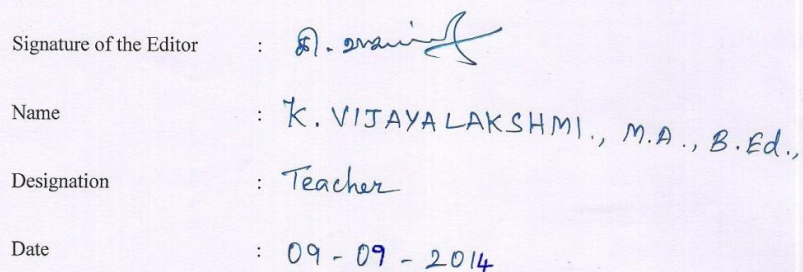 Signature of the Editor :
Name : K. VIJAYALAKSHMI., M.A., B.Ed.,
Designation : Teacher
Date : 09-09-2014